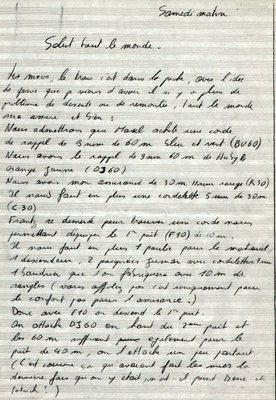 Samedi matin
Salut tout le monde.
les mecs, le trou est dans la poche, avec l'idée
de que je viens d'avoir il n'y a plus de
problème de descente ou de remontée, tout le monde
sera et bien :
Nous admettrons que achète une corde
de rappel de 9mm de 60 m bleu et vert (BV60)
Nous avons le rappel de 9mm 60 m de
orange jaune (OJ60)
Nous avons mon assurance de 30m 11mm rouge (R30)
Il nous faut en plus une cordelette 5mm de 30m
(C30)
se demande pour trouver une corde nous
permettant d'équiper le 1er puit (F10) de 10m.
Il nous faut en plus 1 poulie pour le matériel,
1 descendeur, 2 poignées avec cordelettes
1 baudrier que l'on fabriquera avec 10m de
sangles (vous c'est uniquement pour
le confort pas pour l'assurance.)
Donc avec F10 on descend le 1er puit.
On attache OJ60 en haut du 2ème puit et
les 60 m suffisant également pour le
puit de 40 m, on l'attache un peu partout
(C'est comme ça qu'avaient fait les mecs la
dernière fois qu'on y était, et
)